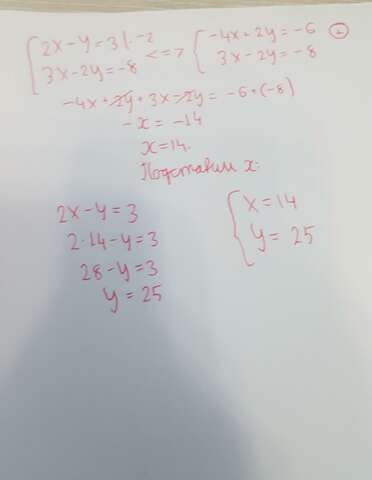 { 2x-y=3 |·-2 <=> { -4x+2y=-6 ①
3x-2y=-8 3x-2y=-8
-4x+2y+3x-2y=-6+(-8)
-x=-14
x=14.
Подставим x:
2x-y=3
2·14-y=3
28-y=3
y=25
{ x=14
y=25